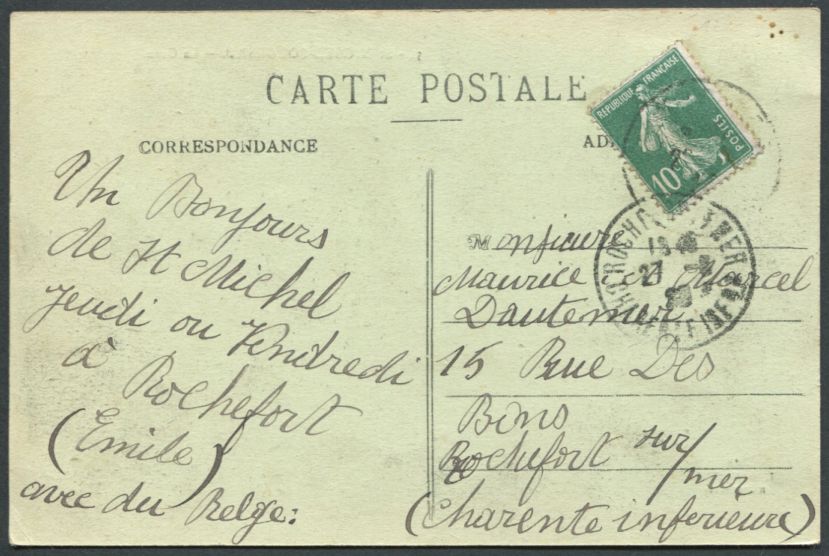 CARTE POSTALE
CORRESPONDANCE
AD
RÉPUBLIQUE FRANÇAISE
POSTES
10c
Un Bonjours
de St Michel
jeudi ou Vendredi
à Rochefort
(Emile)
avec du Belge:
Monsieurs
Maurice et Marcel
Dautemer
15 Rue Des
Bons
Rochefort sur/mer
(Charente inferieure)
ROCHEFORT S MER
18
27
CHARENTE INFRE